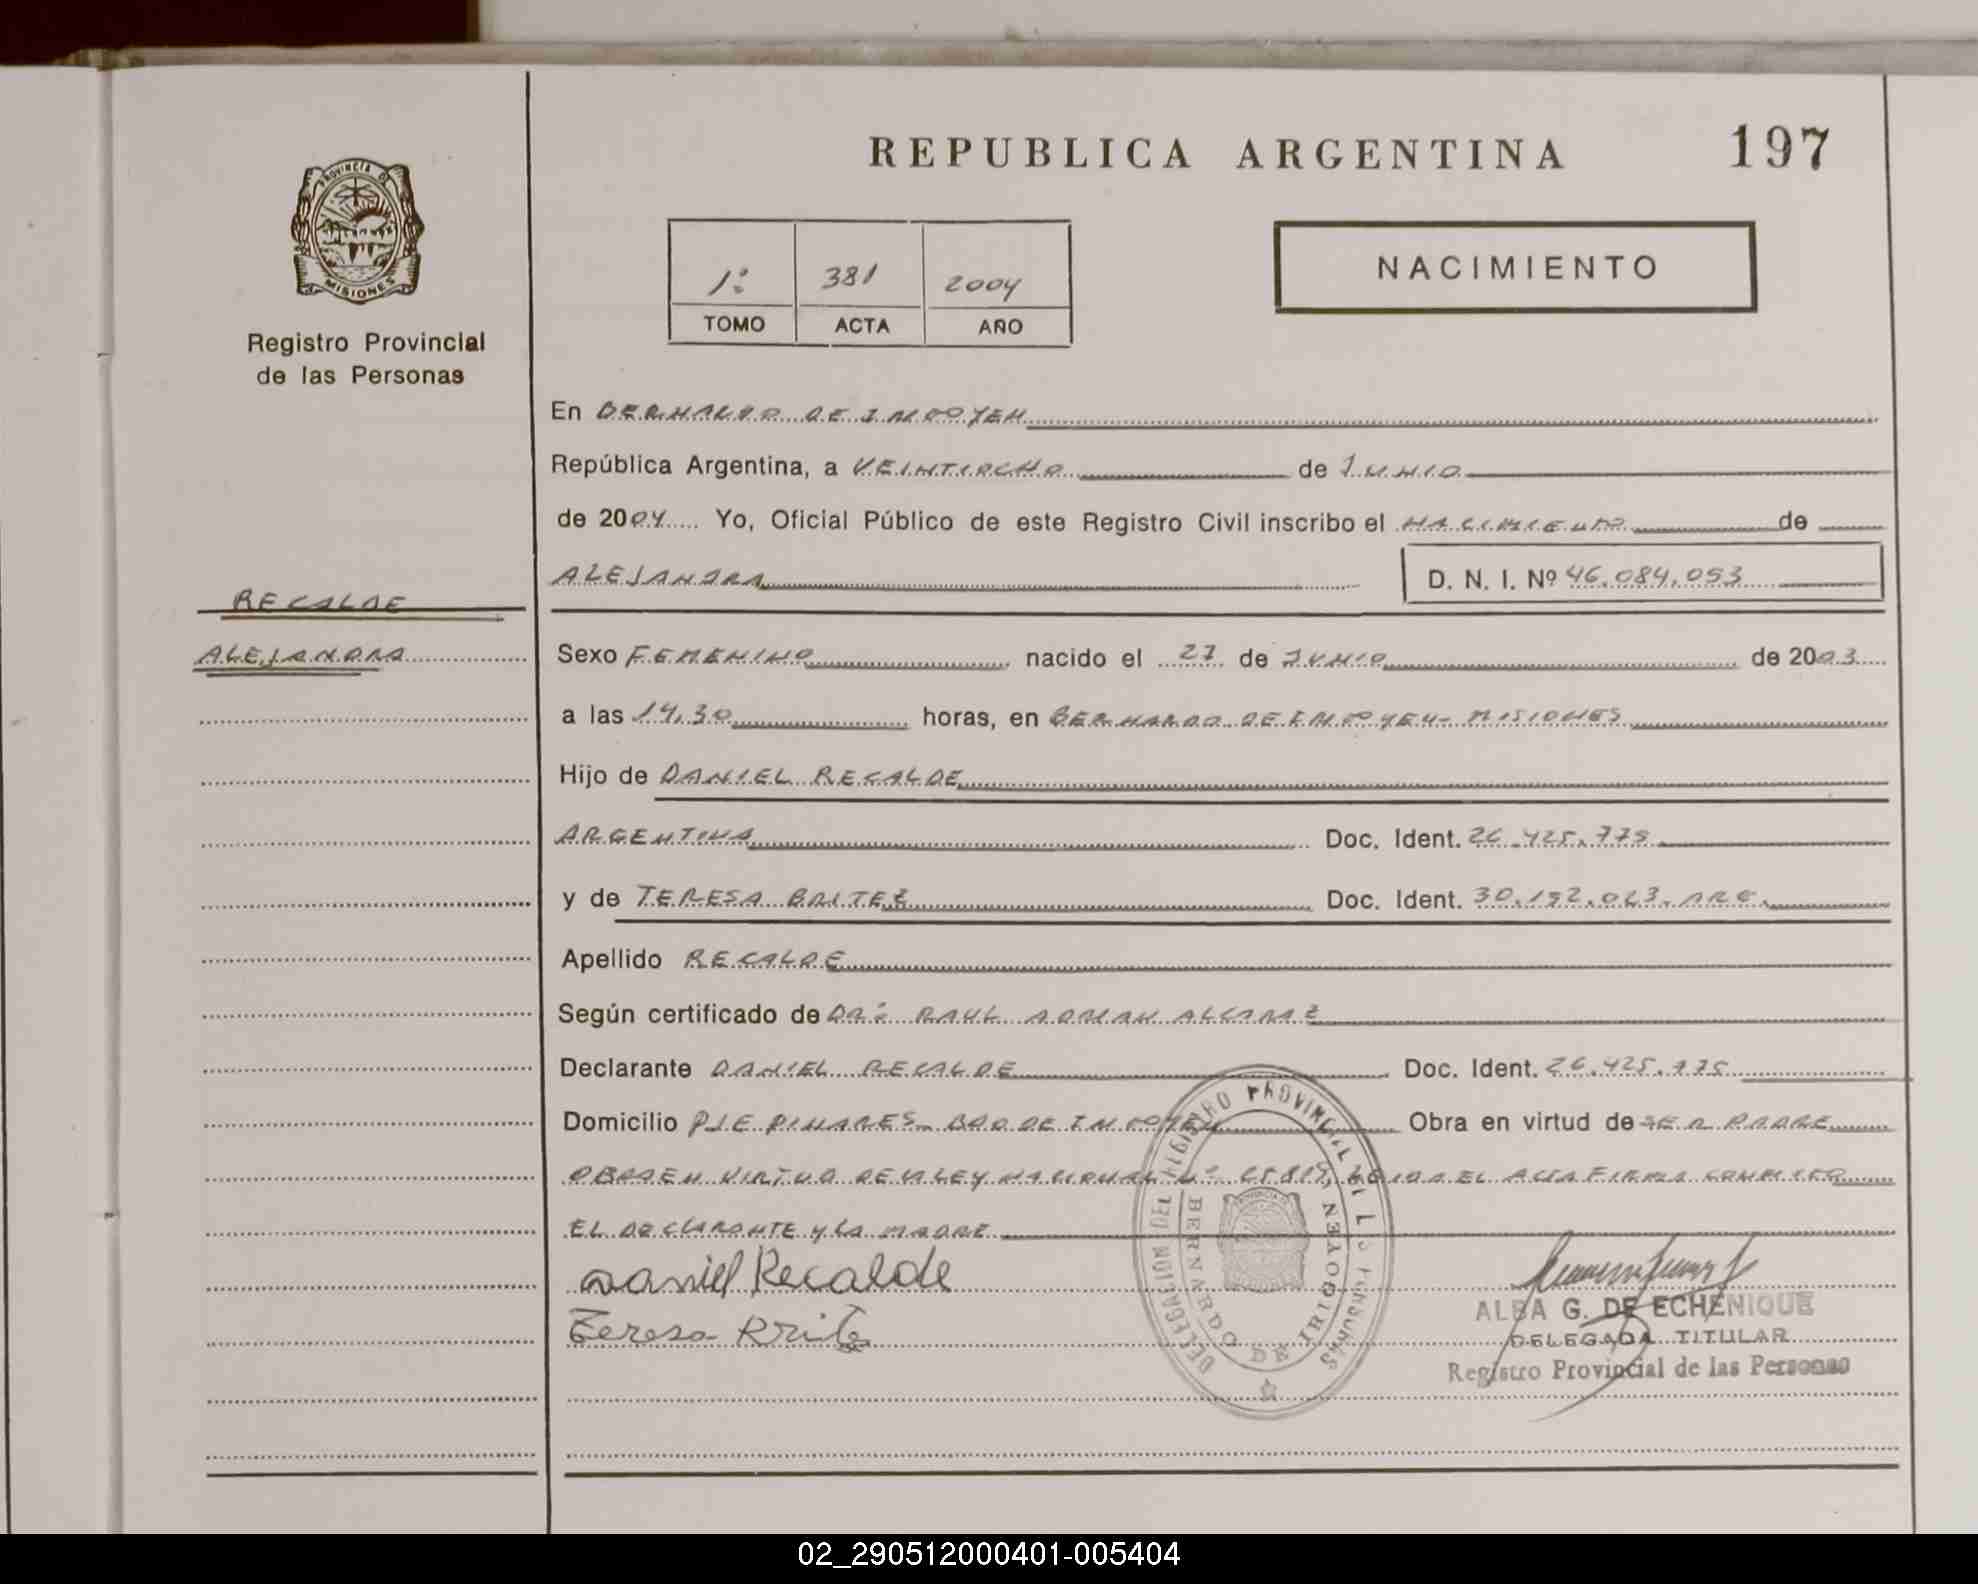 REPUBLICA ARGENTINA
197
PROVINCIA DE
MISIONES
Registro Provincial
de las Personas
1º
381
2004
TOMO
ACTA
AÑO
NACIMIENTO
En BERNARDO DE IRIGOYEN
República Argentina, a VEINTIOCHO de JUNIO
de 2004 Yo, Oficial Público de este Registro Civil inscribo el NACIMIENTO de
ALEJANDRA
D. N. I. Nº 46.084.053
RECALDE
ALEJANDRA
Sexo FEMENINO nacido el 27 de JUNIO de 2003
a las 14,30 horas, en BERNARDO DE IRIGOYEN - MISIONES
Hijo de DANIEL RECALDE
ARGENTINA Doc. Ident. 26.425.775
y de TERESA BRITEZ Doc. Ident. 30.192.023. ARG.
Apellido RECALDE
Según certificado de DR: RAUL ADRIAN ALCARAZ
Declarante DANIEL RECALDE Doc. Ident. 26.425.775
Domicilio PJE PINARES - BDO DE IRIGOYEN Obra en virtud de SER PADRE
OBRO EN VIRTUD DE LA LEY NACIONAL Nº 25819, LEIDA EL ACTA FIRMA CONMIGO
EL DECLARANTE Y LA MADRE
Daniel Recalde
Teresa Britez
DELEGACION DEL REGISTRO PROVINCIAL DE LAS PERSONAS
BERNARDO DE IRIGOYEN
ALBA G. DE ECHENIQUE
DELEGADA TITULAR
Registro Provincial de las Personas
02_290512000401-005404